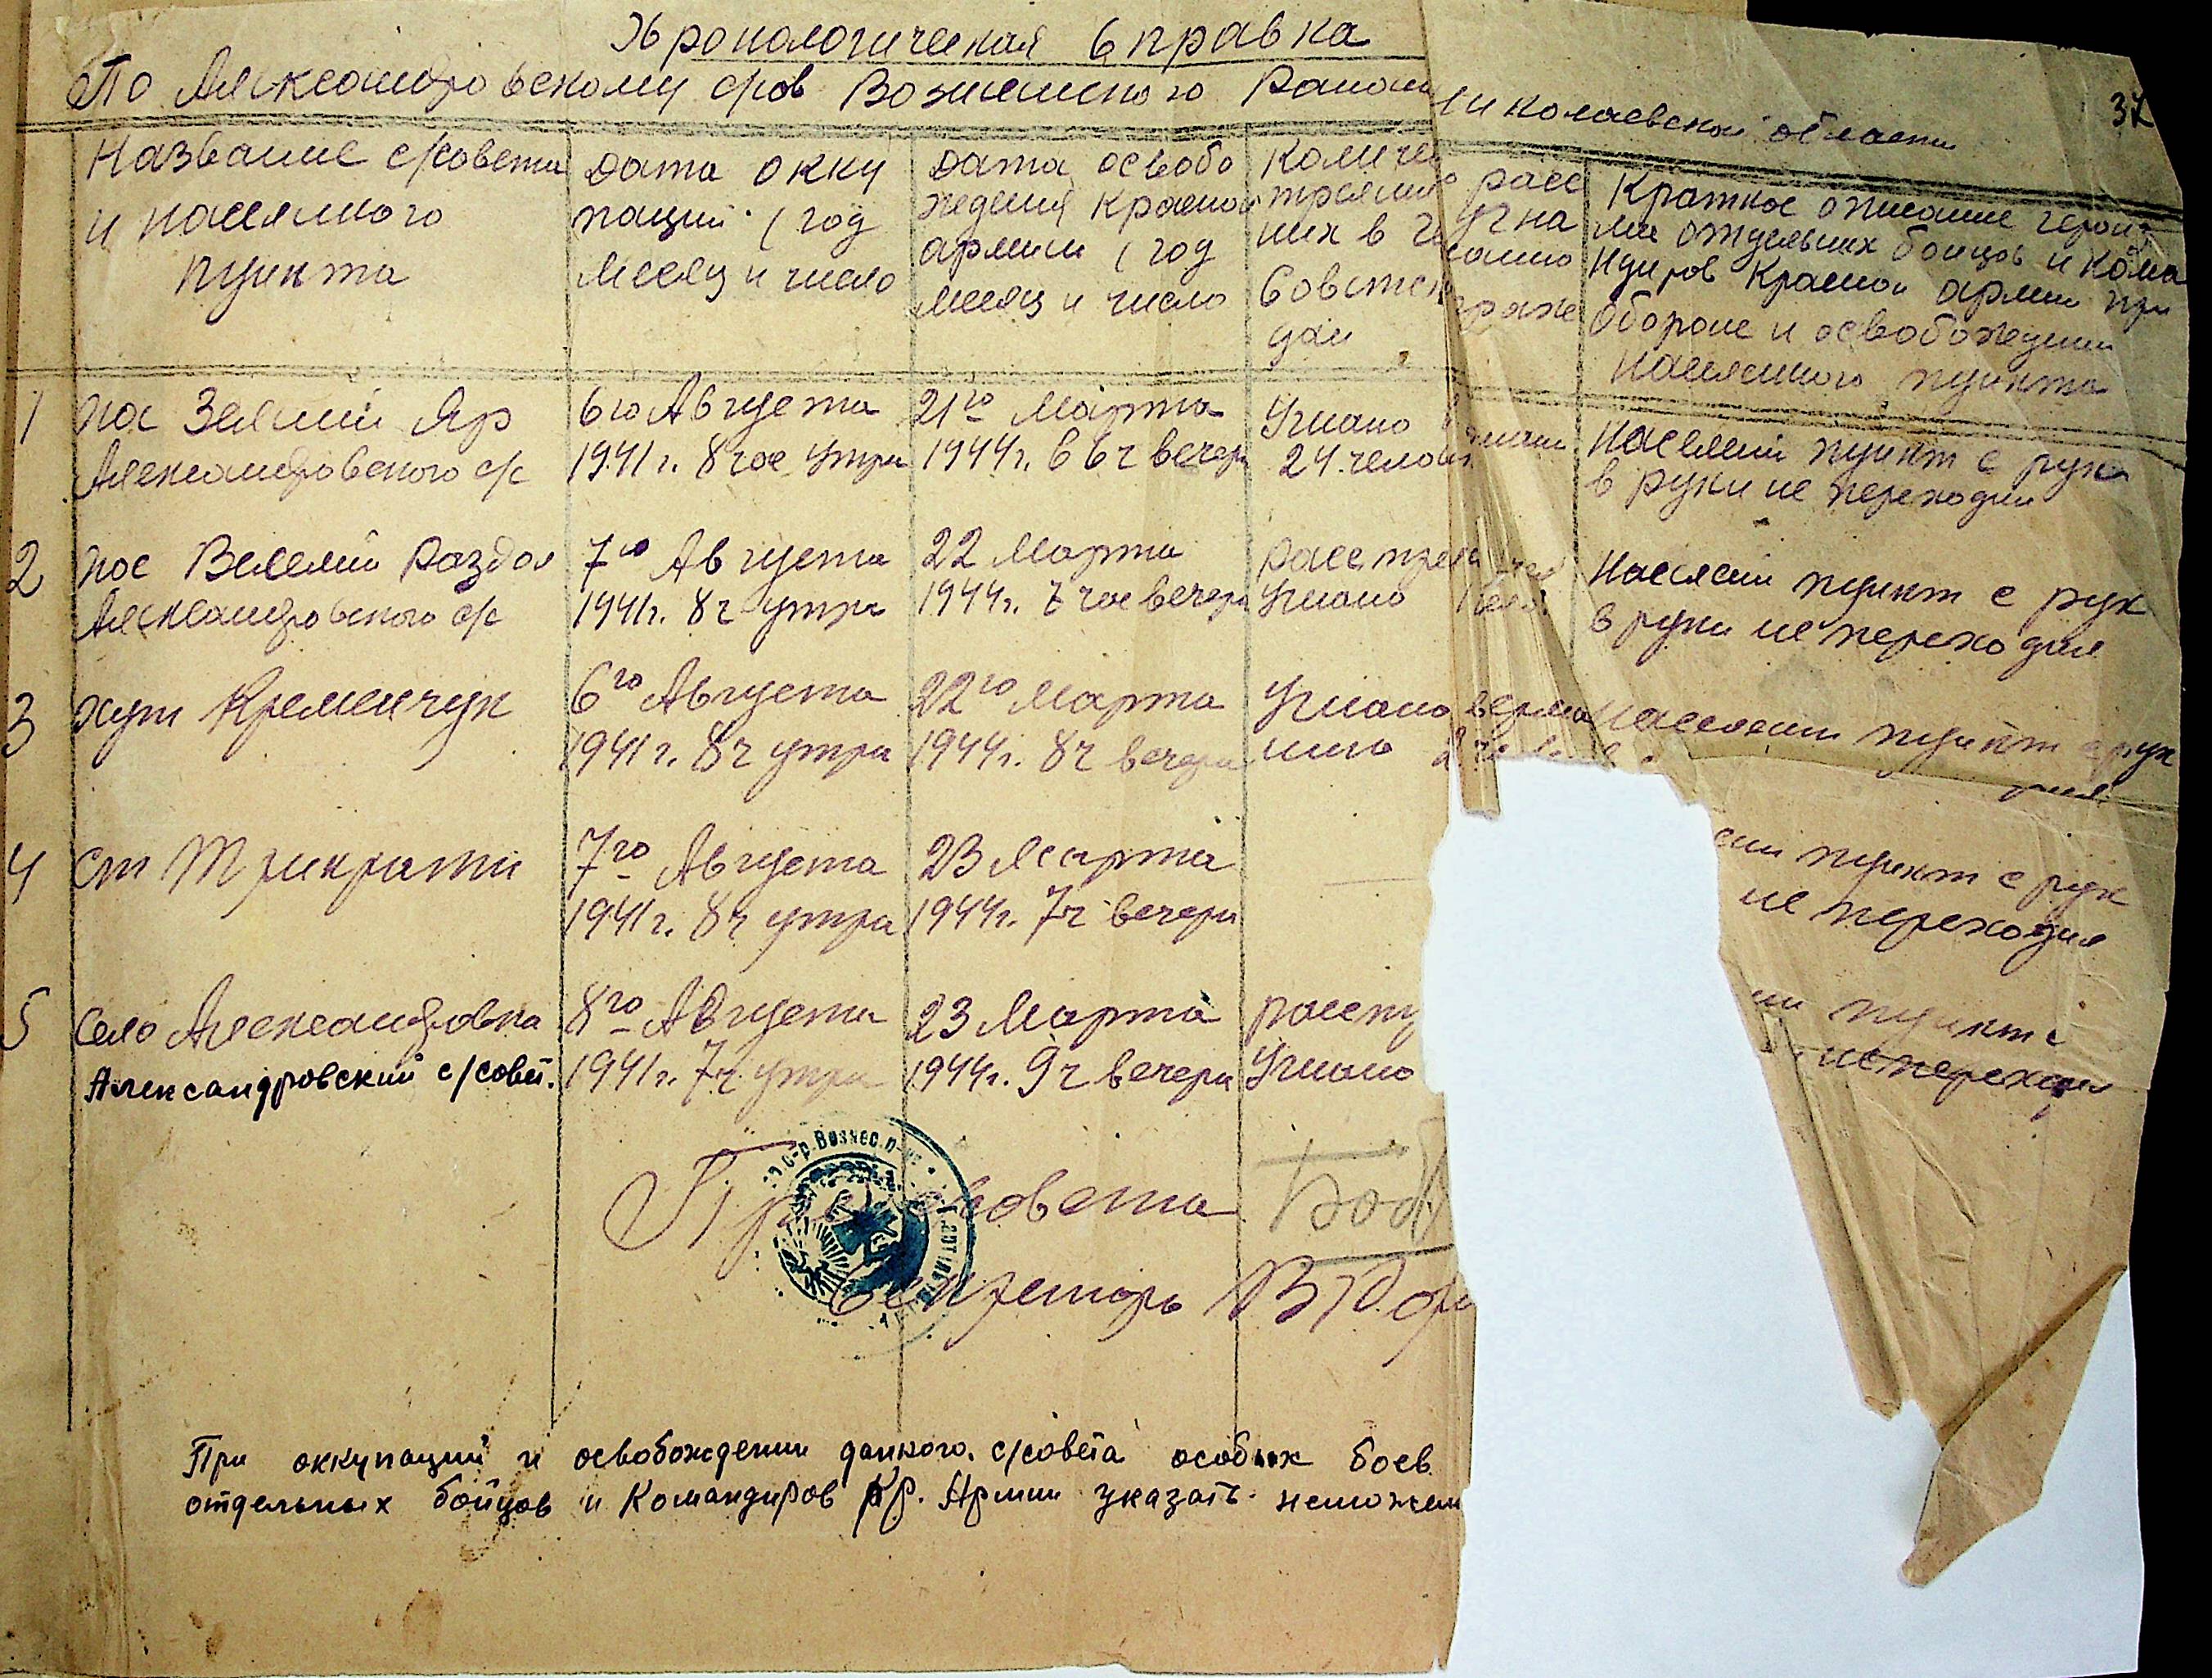 Хронологическая Справка
По Александровскому с/сов Вознесенского Района Николаевской области
37
Название с/совета
и населеного
пункта
дата окку
пации (год
месяц и число
дата освобо
ждения красной
армии (год
месяц и число
Количе
расс
них в
угна
дан
Краткое описание герои
отдельных бойцов и кома
ндиров Красной армии при
обороне и освобождении
населеного пункта
1
пос Зелений Яр
Александровского с/с
6го Августа
1941 г. 8 час утра
21го Марта
1944 г. в 6 ч вечера
Угнано
24 челов
Населений пункт с рук
в руки не переходил
2
пос Веселий Раздол
Александровского с/с
7го Августа
1941 г. 8 ч утра
22 Марта
1944 г. 7 час вечера
расстрел
Угнано
Населений пункт с рук
в руки не переходил
3
хут Кременчук
6го Августа
1941 г. 8 ч утра
22го Марта
1944 г. 8 ч вечера
Угнано герма
нию
Населений пункт с рук
4
ст Трикрати
7го Августа
1941 г. 8 ч утра
23 Марта
1944 г. 7 ч вечера
пункт с рук
не переходил
5
Село Александровка
Александровский с/совет.
8го Августа
1941 г. 7 ч утра
23 Марта
1944 г. 9 ч вечера
расст
Угнано
пункт с
не переходил
Пр с/совета
Секретарь
При оккупаций и освобождении данного с/совета особых боев
отдельных бойцов и Командиров Кр. Армии указать неможем